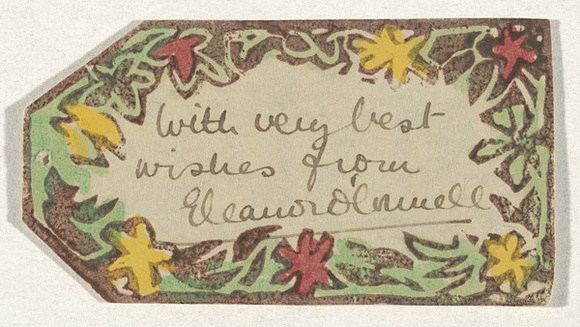 With very best
wishes from
Eleanor O'Connell